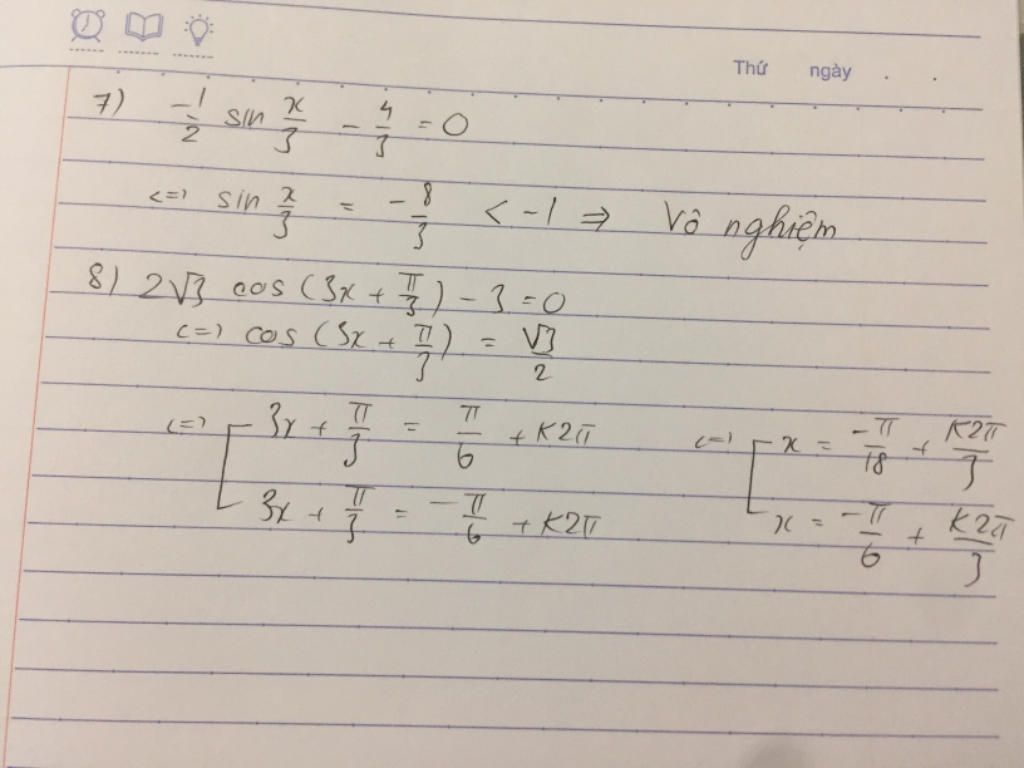 Thứ ngày . .
7) -1/2 sin x/3 - 4/3 = 0
<=> sin x/3 = -8/3 < -1 => Vô nghiệm
8) 2√3 cos (3x + π/3) - 3 = 0
<=> cos (3x + π/3) = √3/2
<=> [ 3x + π/3 = π/6 + K2π <=> [ x = -π/18 + K2π/3
3x + π/3 = -π/6 + K2π x = -π/6 + K2π/3